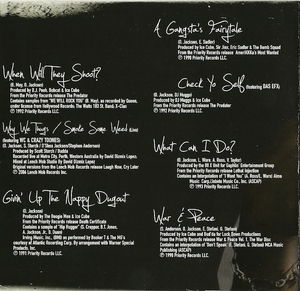 When Will They Shoot?
(B. May, O. Jackson)
Produced by D.J. Pooh, Bobcat & Ice Cube
From the Priority Records release The Predator
Contains samples from "WE WILL ROCK YOU" (B. May), as recorded by Queen,
under license from Hollywood Records. The Walts 101 St. Band, X-Clan
℗ 1992 Priority Records LLC
Why We Thugs / Smoke Some Weed
(featuring WC & CRAZY TOONES)
(O. Jackson, S. Storch / O'Shea Jackson/Stephen Anderson)
Produced by Scott Storch / Budda
Recorded live at Metro City, Perth, Western Australia by David Dizmis Lopez
Mixed at Lench Mob Studio by David Dizmis Lopez
Original versions from the Lench Mob Records release Laugh Now, Cry Later
℗ 2006 Lench Mob Records Inc.
Givin' Up The Nappy Dugout
(O. Jackson)
Produced by The Boogie Men & Ice Cube
From the Priority Records release Death Certificate
Contains a sample of
A. Jackson, Jr., D. Dunn)
Irving Music, Inc. (BMI) as performed by Booker T & The MG's
courtesy of Atlantic Recording Corp. By arrangement with Warner Special
Products, Inc.
℗ 1991 Priority Records LLC.
A Gangsta's Fairytale
(O. Jackson, E. Sadler)
Produced by Ice Cube, Sir Jinx, Eric Sadler & The Bomb Squad
From the Priority Records release AmeriKKKa's Most Wanted
℗ 1990 Priority Records LLC
Check Yo Self (featuring DAS EFX)
(O. Jackson, DJ Muggs)
Produced by DJ Muggs & Ice Cube
From the Priority Records release The Predator
℗ 1992 Priority Records LLC
What Can I Do?
Produced by the 88 X Unit for Gagiltir Entertainment Group
From the Priority Records release Lethal Injection
Contains an interpolation of
Jobete Music Co., Inc. (ASCAP)
℗ 1993 Priority Records LLC
War & Peace
(S. Anderson, O. Jackson, E. Stefani, G. Stefani)
Produced by Ice Cube and Bud'da for Lock Down Productions
From the Priority Records release War & Peace Vol. 1, The War Disc
Contains an interpolation of "Don't Speak", G. Stefani, E. Stefani, MCA Music
Publishing (ASCAP)
℗ 1998 Priority Records LLC